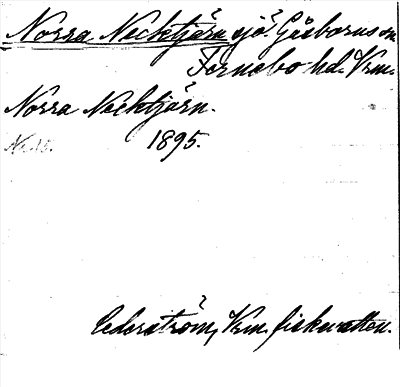 Norra Necktjärn sjö? Gåsborns sn
Fernebo hd. Vrm.
Norra Necktjärn.
1895.
Cederström, Vrm. fiskevatten.